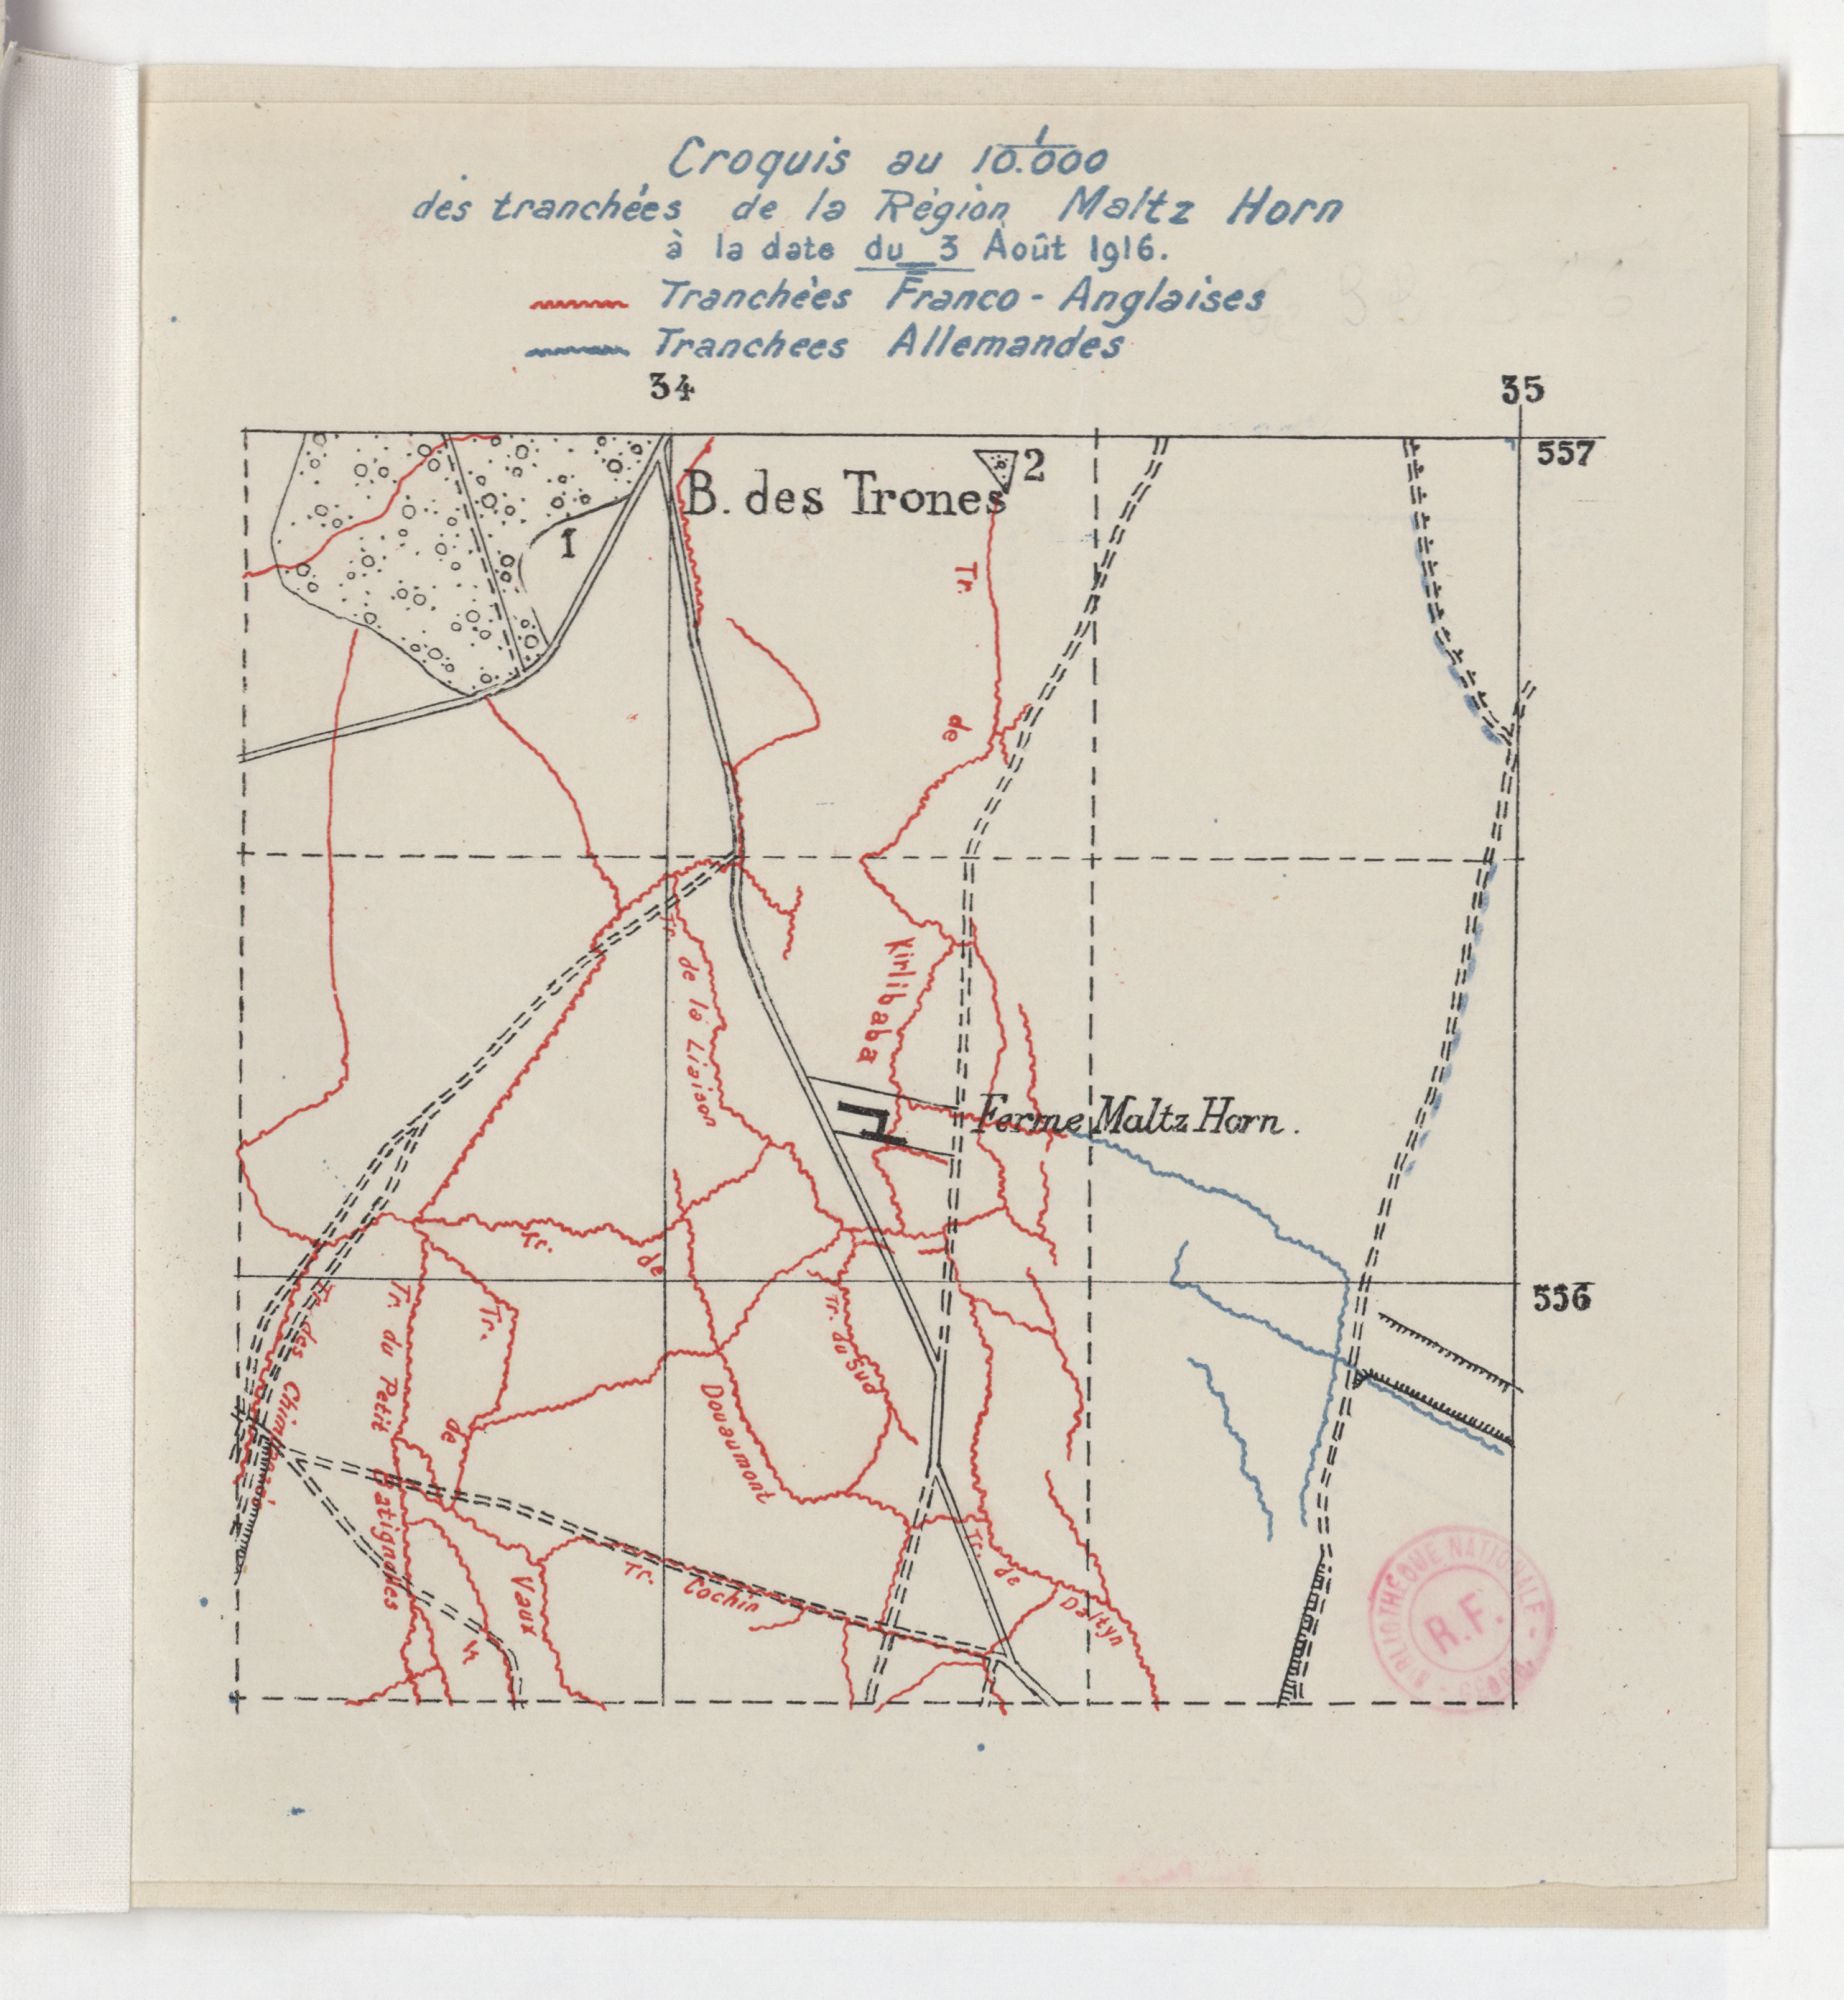 Croquis au 1/10.000
des tranchées de la Région Maltz Horn
à la date du 3 Août 1916.
Tranchées Franco-Anglaises
Tranchees Allemandes
34
35
557
B. des Trones
2
1
Tr.
de
Kirlibaba
Tr. de la Liaison
Ferme Maltz Horn.
Tr.
de
Douaumont
556
Tr. des
Tr. du Petit Batignolles
Tr.
de
Vaux
Tr. du Sud
Tr. Cochin
Tr. de Daltyn
BIBLIOTHEQUE NATIONALE
R.F.